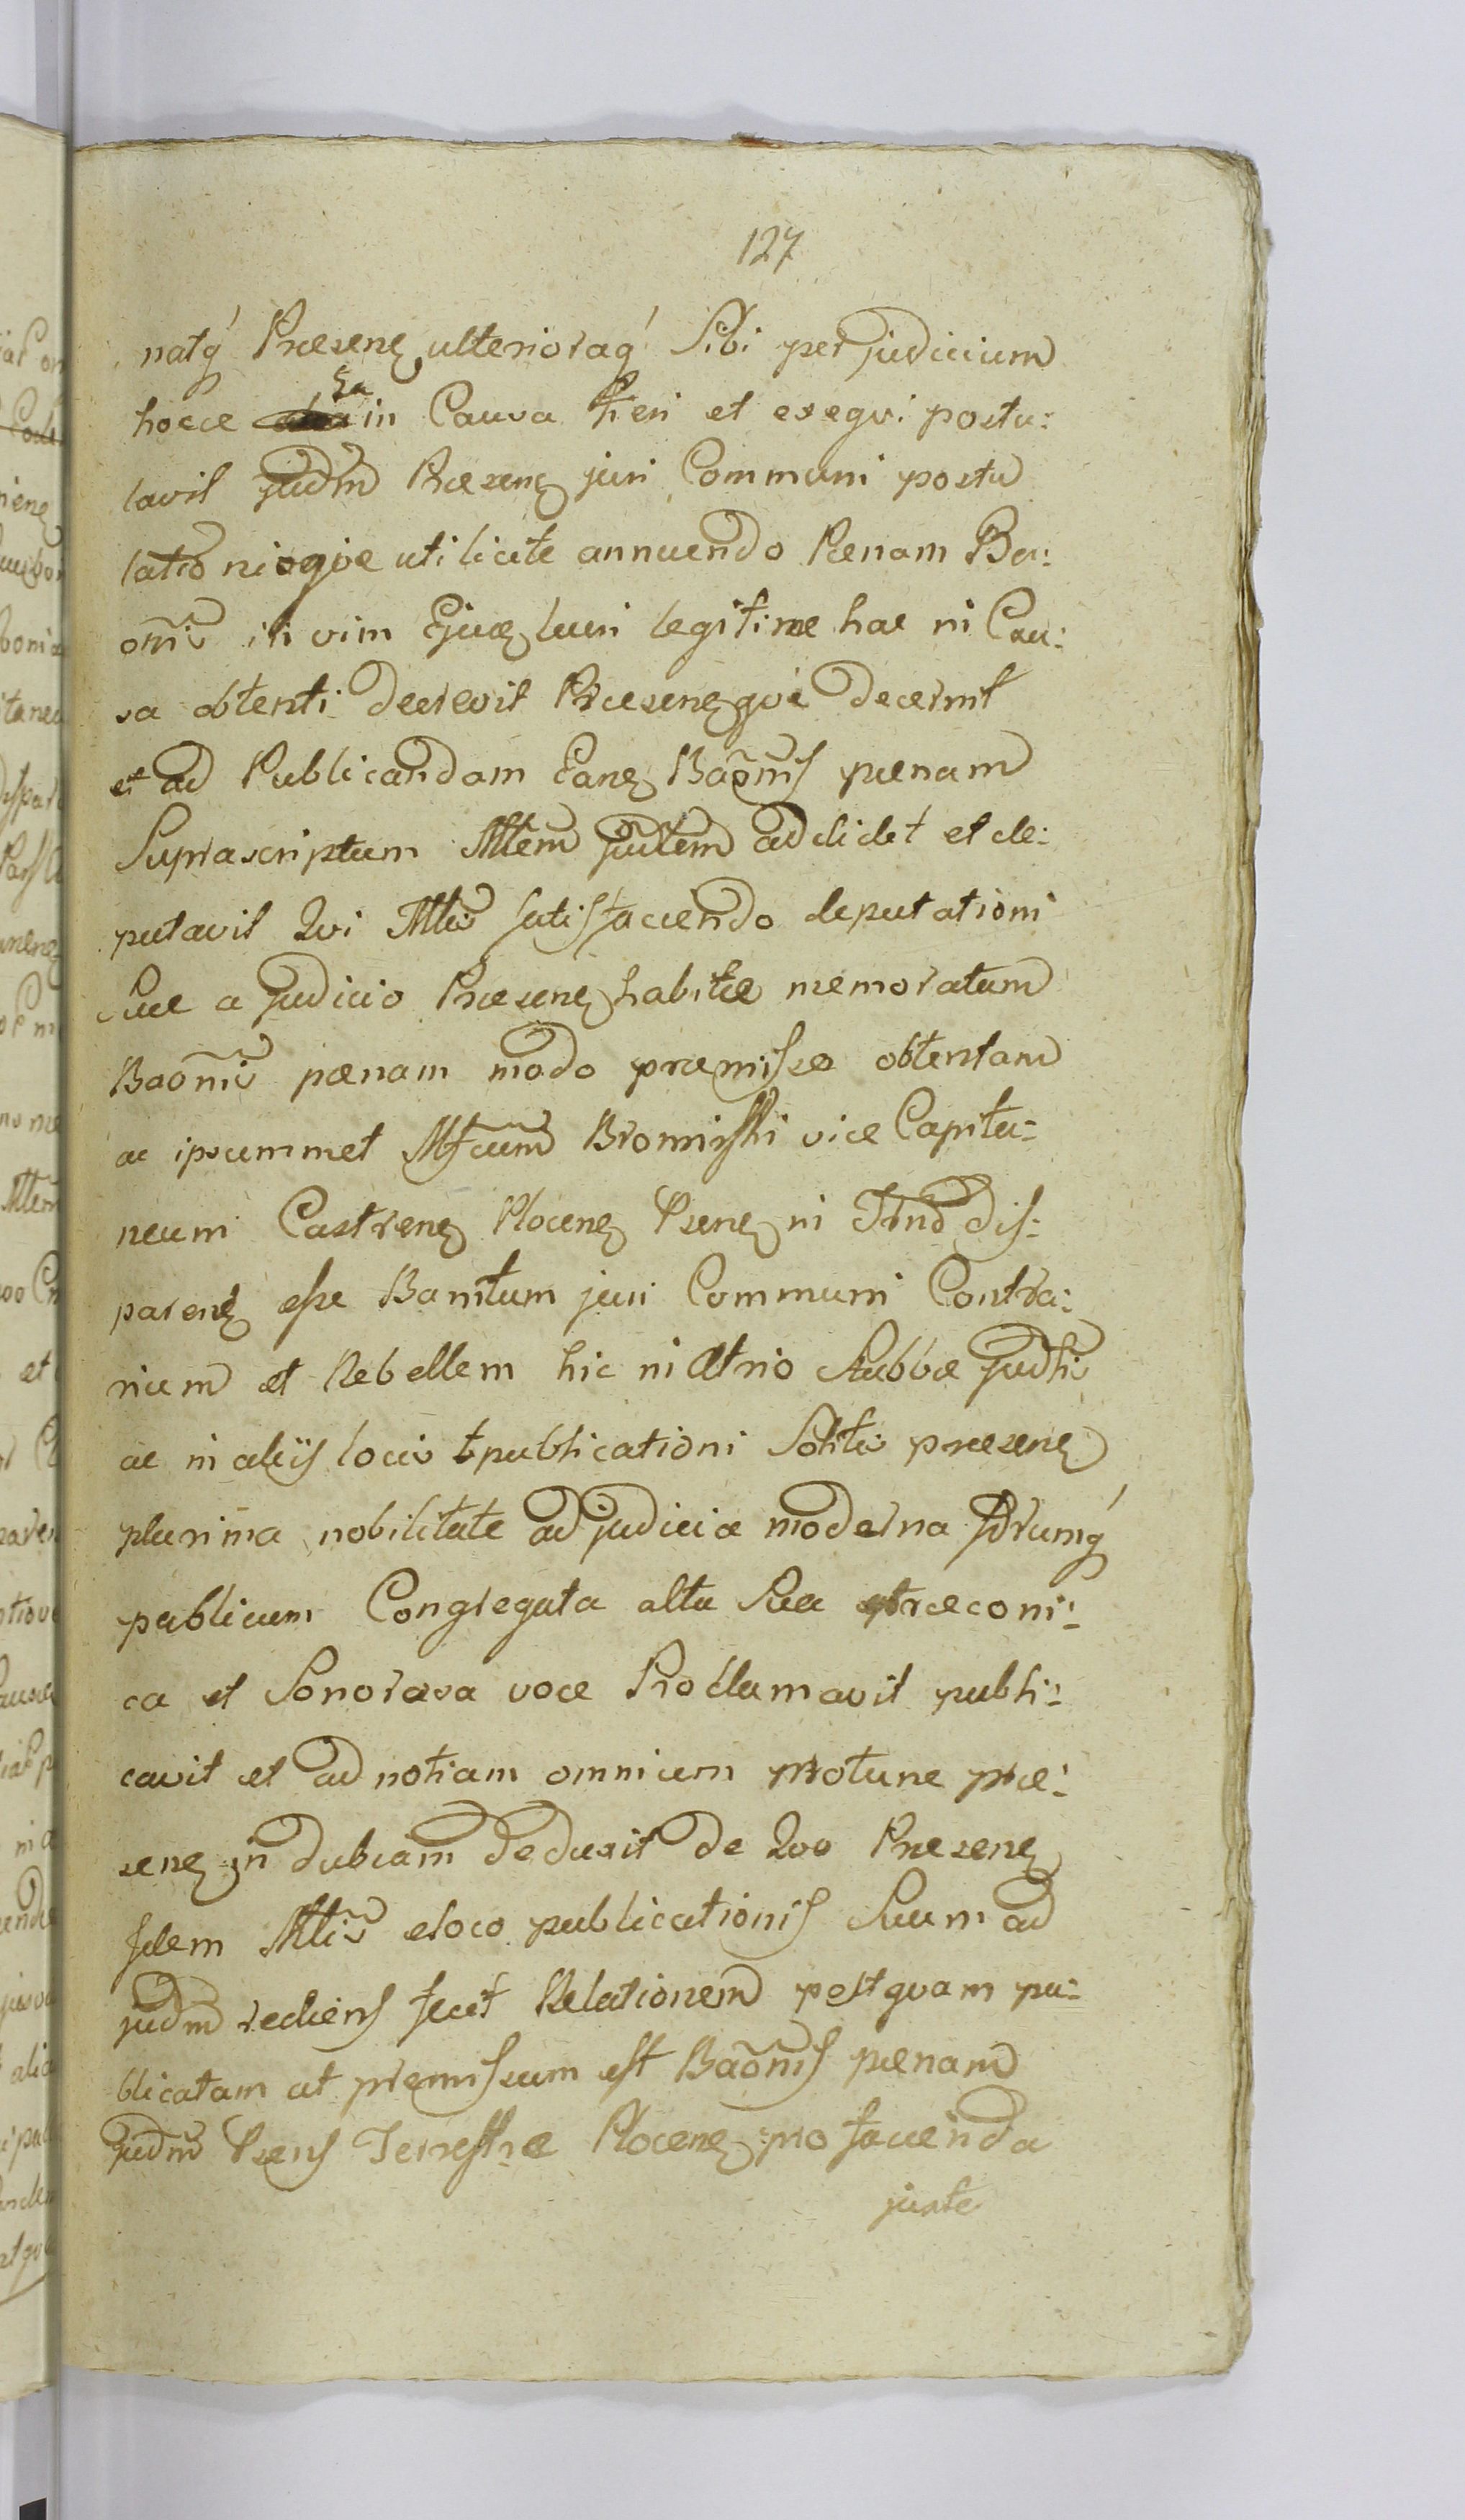 127
natq́ Præsenȩ ulterioraq́ Sibi per judicium
hocce Ea in Causa Fieri et exeqvi postu:
lavit Judm̃ Præsenȩ juri Communi postu
lationiqve uti licite annuendo Pænam Ba:
onĩs in vim Ejusȩ lucri legitime hac in Cau:
sa obtenti decrevit Præsenȩqve decernit
et ad Publicandam Eanȩ Baõnis pænam
Suprascriptum Mltem̃ Judtem̃ addidit et de:
putavit Qvi Mltis̃ satisfaciendo deputationi
Suæ a Judicio Præsenȩ habitæ memoratam
Baõnis pænam modo præmisso obtentam
ac ipsummet Mfcum̃ Bromirski vice Capita:
neum Castrenȩ Plocenȩ Psenȩ in Tmnõ dis:
parenȩ esse Banitum juri Communi Contra:
rium et Rebellem hic in Atrio Stubbæ Judlis̃
ac in aliis locis publicationi Solitis præsenȩ
plurima nobilitate ad judicia moderna Fõrumq́
publicum Congregata alta Sua præconi:
ca et Sonorosa voce Proclamavit publi:
cavit et ad notiam omnium protunc præ:
senȩ in dubiam deduxit de Qvo Præsenȩ
Idem Mltis̃ eloco publicationis Suum ad
judm̃ rediens fecit Relationem postqvam pu:
blicatam ut præmissum est Baõnis pænam
Judm̃ Psens Terrestre Plocenȩ pro facienda
juste